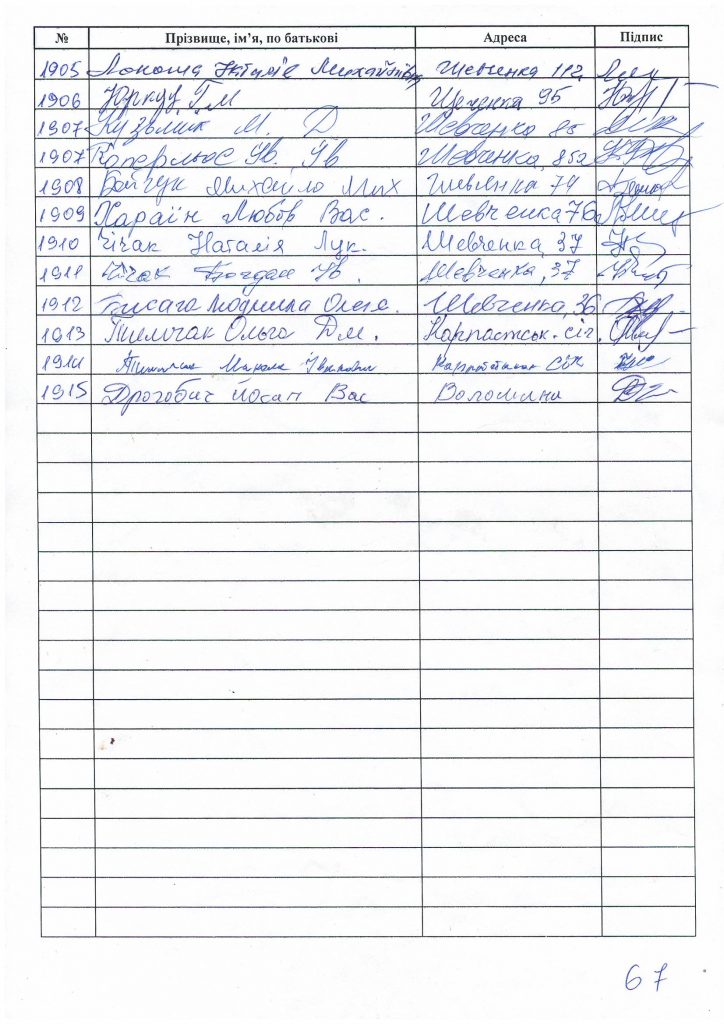 № Прізвище, ім’я, по батькові Адреса Підпис
1905 Михайлівна Шевченка 112
1906 Юркуц Г М 95
1907 Кузьмик М. Д Шевченко 85
1907 Ів. Ів Шевченка, 85а
1908 Бойчук Михайло Мих Шевченка 74
1909 Хараїн Любов Вас. Шевченка 76
1910 Чічак Наталія Лук. Шевченка, 37
1911 Чічак Богдан Ів. Шевченка, 37
1912 Людмила Олекс. Шевченко, 36
1913 Тимчак Ольга Дм. Карпатськ. січ.
1914 Микола Іванович Січ
1915 Дрогобич Йосип Вас Волошина
67